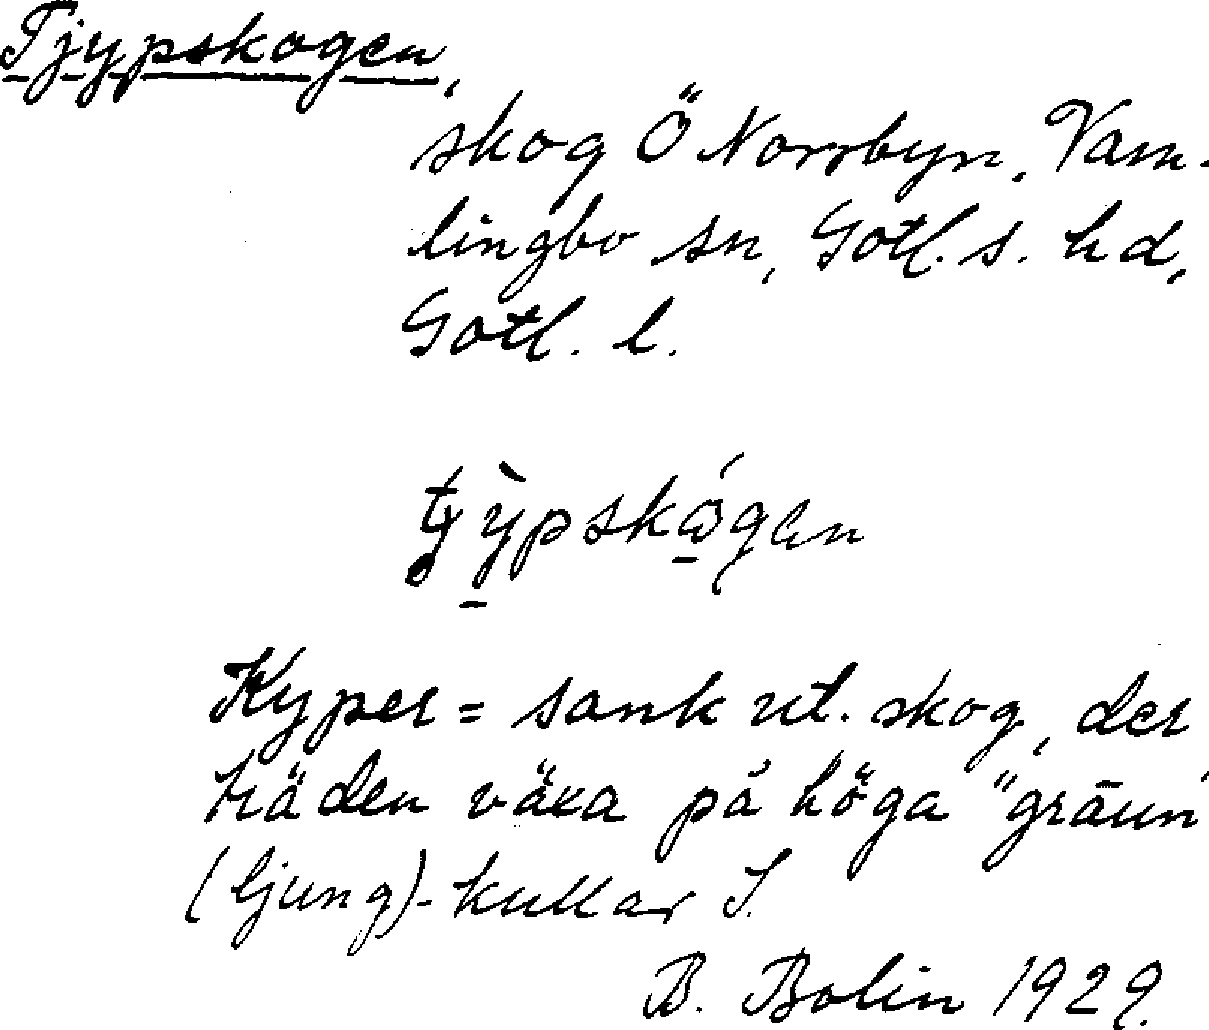 Tjypskogen,
skog Ö Norrbyn, Vam-
lingbo sn, Gotl. s. hd,
Gotl. l.
Kyper = sank ut. skog, der
träden växa på höga "gräun"
(ljung)-kullar S.
B. Bolin 1929.